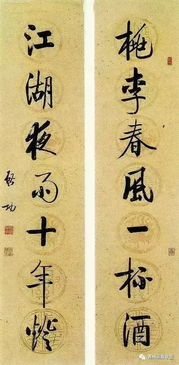 桃李春风一杯酒
江湖夜雨十年灯
启功